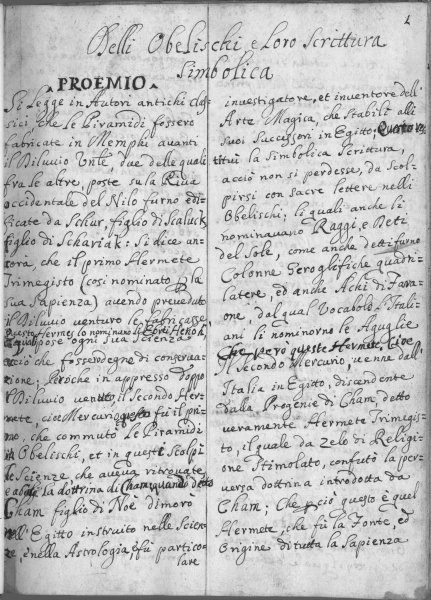 1
Delli Obelischi e Loro Scrittura
Simbolica
PROEMIO
Si Legge in Autori antichi clas
sici, che le Piramidi fossero
fabricate in Memphi avanti
il Diluvio Un͞le, due delle quale
fra le altre, poste su la Riva
occidentale del Nilo furno edi
ficate da Schur, figlio di Scaluck
figlio di Schariak: Si dice an
cora, che il primo Hermete
Trimegisto (cosi nominato p la
sua Sapienza) avendo preveduto
il Diluvio venturo le fabricasse
Hermes lo nominano li Ebrei Henoh,
pose ogni sua scienza
acciò che fossero degno di conserva
zione; Peroche in appresso doppo
il Diluvio venuto, il secondo Her
mete, cioè Mercurio fù il pri
mo, che commutò le Piramidi
in Obelischi, et in questi Scolpì
le Scienze, che aveva ritrovate
la dottrina di Cham, quando detto
Cham figlio di Noè dimorò
nell' Egitto instruito nelle Scien
ze, e nella Astrologia, e fù partico
lare
investigatore, et inventore dell'
Arte Magica, che stabilì alli
suoi Successori in Egitto;
la Simbolica Scrittura,
acciò non si perdesse, da Scol
pirsi con sacre lettere nelli
Obelischi; li quali anche li
nominavano Raggi, e Deti
del Sole, come anche detti furno
Colonne Geroglefiche quadri
latere, ed anche Achi di Fara
one, dal qual Vocabolo l'Itali
ani li nominorno le Aguglie
Che pero queste Hermete, cioe
Il secondo Mercurio, venne dall'
Italia in Egitto, discendente
dalla Progenie di Cham, detto
veramente Hermete Trimegis
to, il quale da Zelo di Religi
one Stimolato, confutò la per
versa dottrina introdotta da
Cham; Che pciò questo è quel
Hermete, che fù la Fonte, ed
Origine di tutta la Sapienza